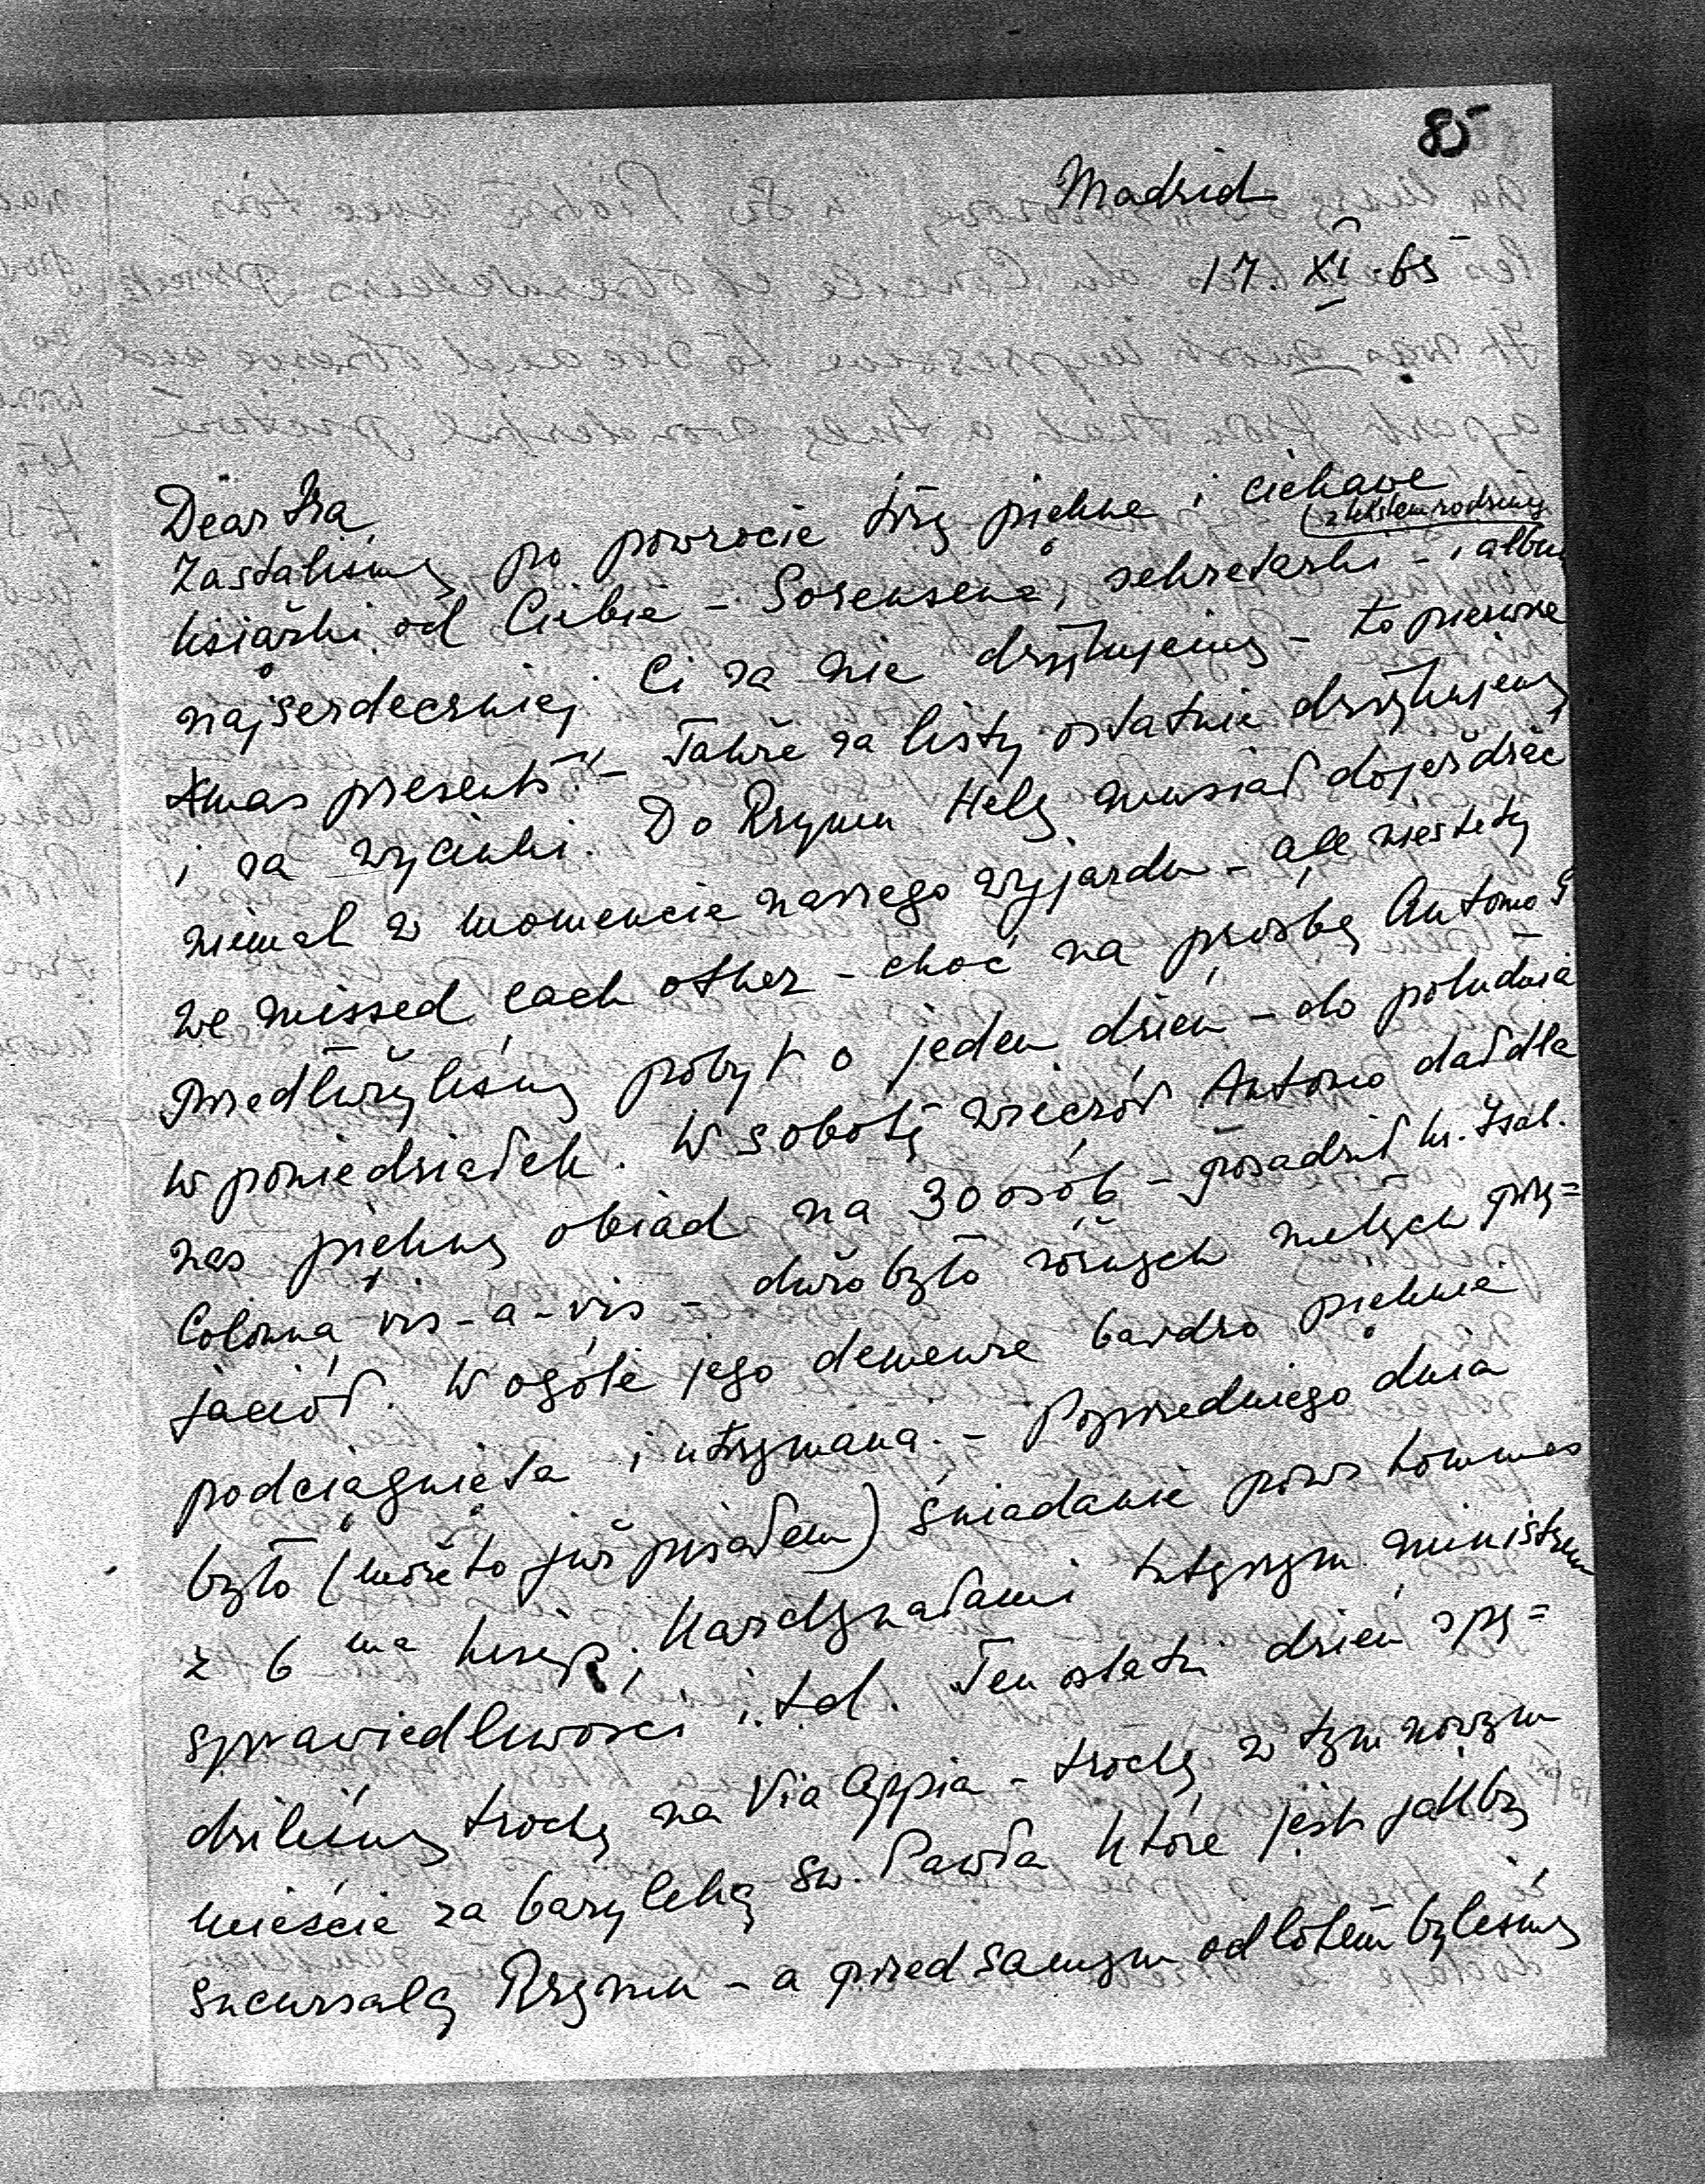 85
Madrid
17. XI. 65
Dear Ira,
Zastaliśmy po powrocie trzy piękne i ciekawe
książki od Ciebie – Sorensena, sekretarki – i album
(z tekstem rodziny
najserdeczniej Ci za nie dziękujemy – to pierwsze
Xmas presents" – Także za listy ostatnie dziękujemy
i za wycinki. Do Rzymu Hely musiał dojeżdżać
niemal w momencie naszego wyjazdu – ale niestety
we missed each other – choć na prośbę Antonio
przedłużyliśmy pobyt o jeden dzień – do południa
w poniedziałek. W sobotę wieczór Antonio dał dla
nas piękny obiad na 30 osób – posadził ks. Izab.
Colonna vis-a-vis – dużo było różnych miłych przy=
jaciół. W ogóle jego demeure bardzo pięknie
podciągnięta i utrzymana. – Poprzedniego dnia
było (może to już pisałem) śniadanie pour hommes
z 6 ma księż. Kardynałami tutejszym ministrem
sprawiedliwości i.t.d. Ten ostatni dzień spę=
dziliśmy trochę na Via Appia – trochę w tym nowym
mieście za bazyliką św. Pawła które jest jakby
sucursalą Rzymu – a przed samym odlotem byliśmy